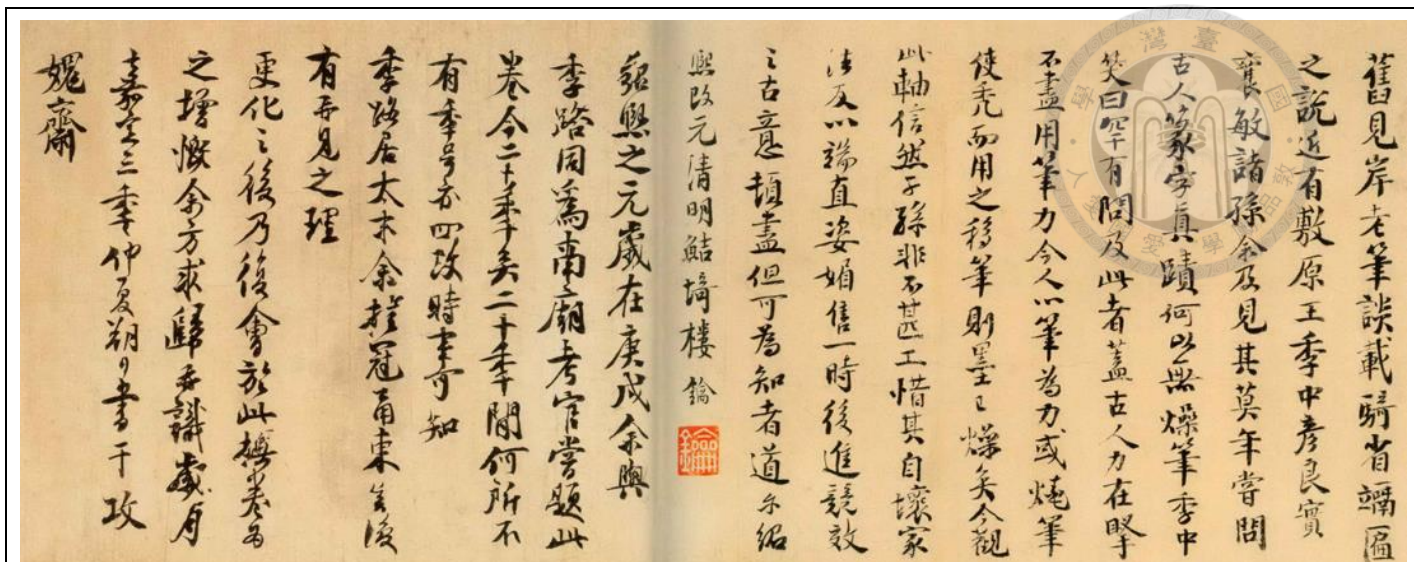 舊見岸老筆談載騎省竵匾
之說近有敷原王季中彦良實
襄敏諸孫余及見其莫年嘗問
古人篆字真蹟何以無燥筆季中
笑曰罕有問及此者蓋古人力在掔
不盡用筆力今人以筆為力或燒筆
使禿而用之移筆則墨已燥矣今觀
此軸信然子孫非不甚工惜其自壞家
法反以端直姿媚售一時後進競效
之古意頓盡但可為知者道尓紹
熙改元清明鮚埼樓鑰
鑰
紹熙之元歲在庚戌余與
季路同為南廟考官嘗題此
卷今二十季矣二十季間何所不
有季号亦四改時事可知
季路居太末余挂冠甬東豈復
有再見之理
更化之後乃復會於此撫卷為
之增慨余方求歸再識歲月
嘉定三季仲夏朔日書于攻
媿齋